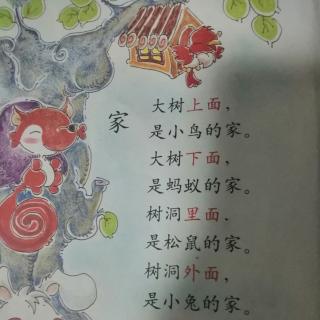 家
大树上面，
是小鸟的家。
大树下面，
是蚂蚁的家。
树洞里面，
是松鼠的家。
树洞外面，
是小兔的家。